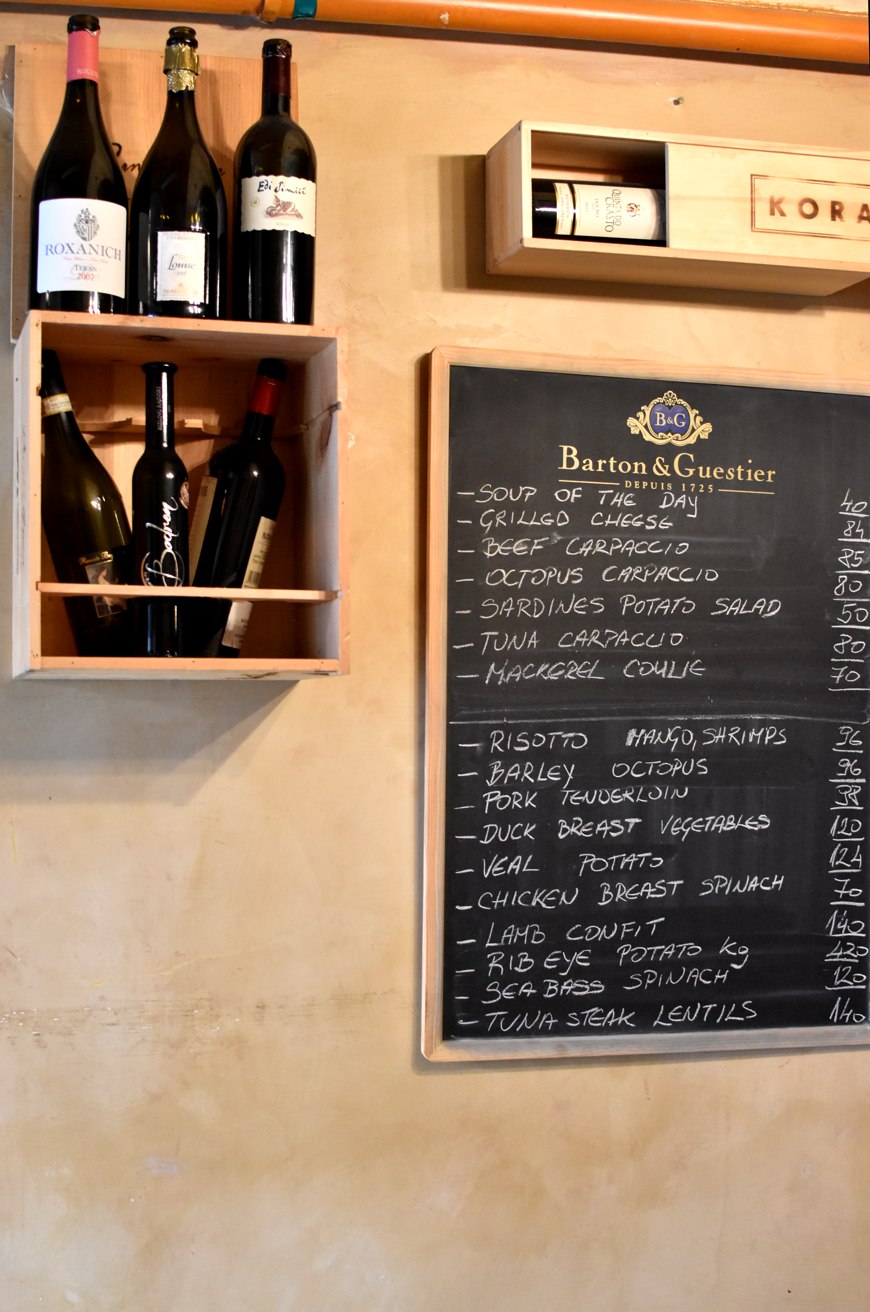 ROXANICH
TERAN
2007
Louise
Edi Simčič
QUINTA DO
CRASTO
KORA
B&G
Barton & Guestier
DEPUIS 1725
- SOUP OF THE DAY 40
- GRILLED CHEESE 84
- BEEF CARPACCIO 85
- OCTOPUS CARPACCIO 80
- SARDINES POTATO SALAD 50
- TUNA CARPACCIO 80
- MACKEREL COULIE 70
- RISOTTO MANGO, SHRIMPS 96
- BARLEY OCTOPUS 96
- PORK TENDERLOIN 98
- DUCK BREAST VEGETABLES 120
- VEAL POTATO 124
- CHICKEN BREAST SPINACH 70
- LAMB CONFIT 140
- RIB EYE POTATO kg 420
- SEA BASS SPINACH 120
- TUNA STEAK LENTILS 140